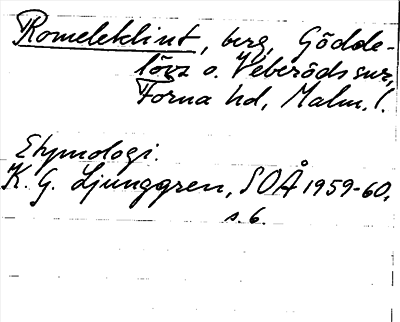 Romeleklint, berg, Gödde-
lövs o. Veberöds snr,
Torna hd, Malm. l.
Etymologi.
K. G. Ljunggren, SOÅ 1959-60,
s. 6.